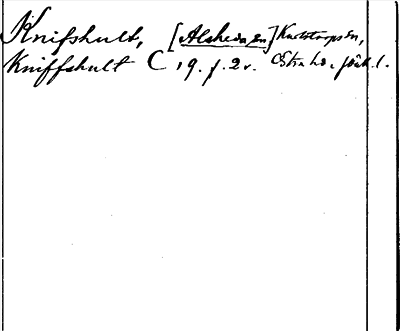 Knifshult, [Alsheda sn] Karlstorps sn,
Kniffshult C, 9. f. 2v. Östra hd. Jönk. l.